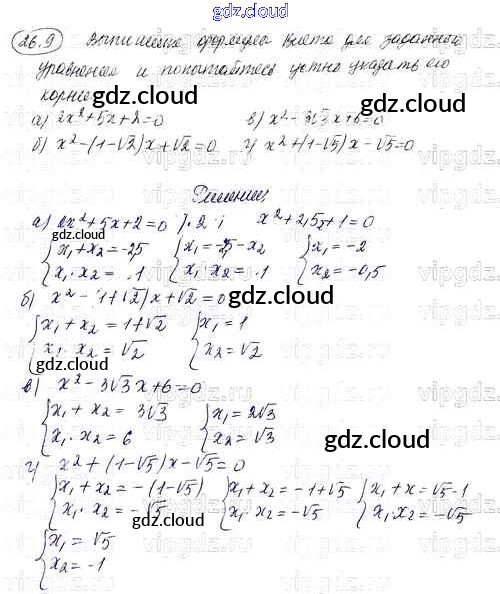 gdz.cloud
26.9 Выпишите формулы Виета для заданного
уравнения и попытайтесь устно указать его
корни
gdz.cloud
а) 2x²+5x+2=0 в) x²-3√3x+6=0
gdz.cloud
б) x²-(1-√2)x+√2=0 г) x²+(1-√5)x-√5=0
Решение
а) 2x²+5x+2=0 |:2; x²+2,5x+1=0
gdz.cloud
x₁+x₂=-2,5 x₁=-2,5-x₂ x₁=-2
x₁·x₂=1 x₁·x₂=1 x₂=-0,5
б) x²-(1+√2)x+√2=0
gdz.cloud
x₁+x₂=1+√2 x₁=1
x₁·x₂=√2 x₂=√2
gdz.cloud
в) x²-3√3x+6=0
x₁+x₂=3√3 x₁=2√3
x₁·x₂=6 x₂=√3
gdz.cloud
г) x²+(1-√5)x-√5=0
x₁+x₂=-(1-√5) x₁+x₂=-1+√5 x₁+x=√5-1
x₁·x₂=-√5 x₁·x₂=-√5 x₁·x₂=-√5
gdz.cloud
x₁=√5
x₂=-1
gdz.cloud